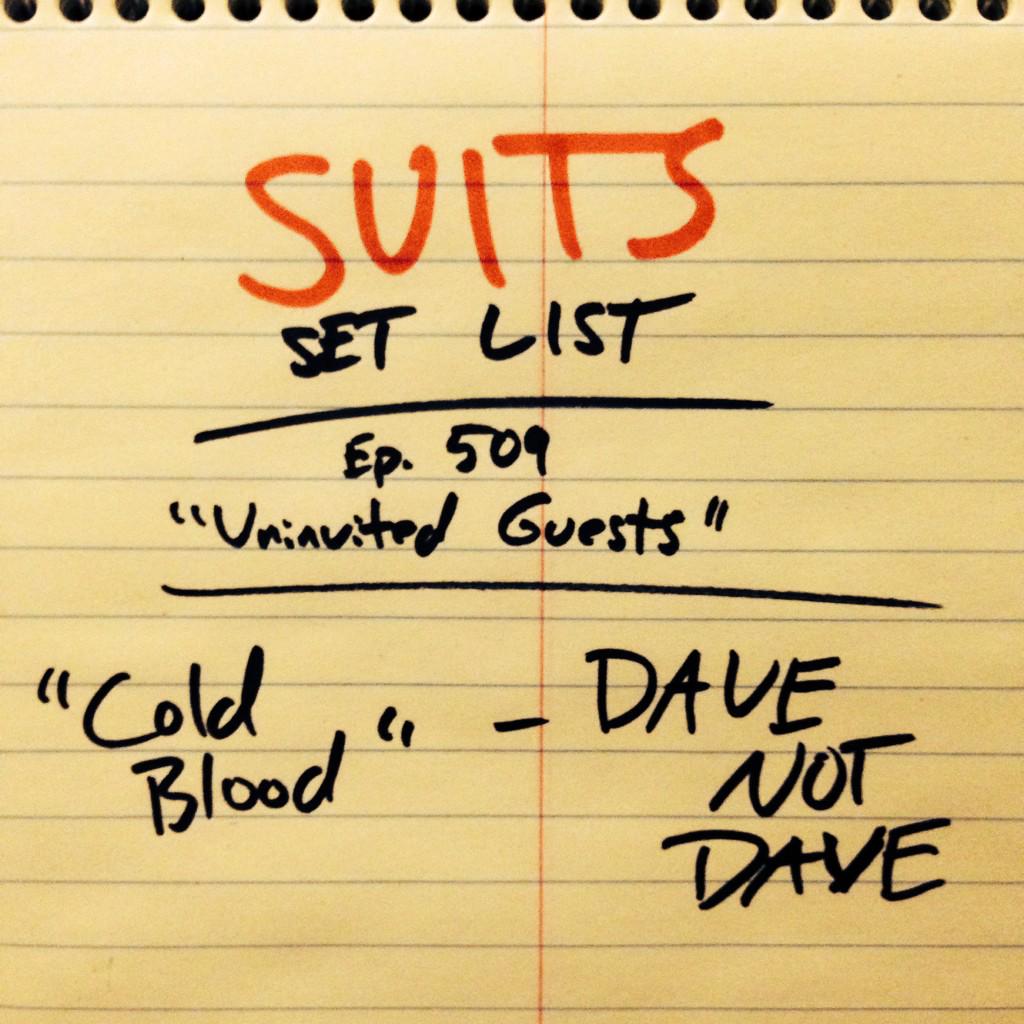 SUITS
SET LIST
Ep. 509
"Uninvited Guests"
"Cold Blood" - DAVE
NOT
DAVE